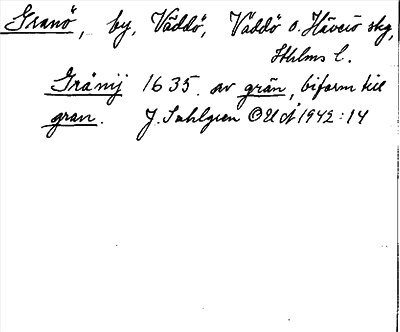 Granö, by, Väddö, Väddö o. Häverö skg,
Sthlms l.
Gränij 1635. av grän, biform till
gran. J. Sahlgren OUÅ 1942:14